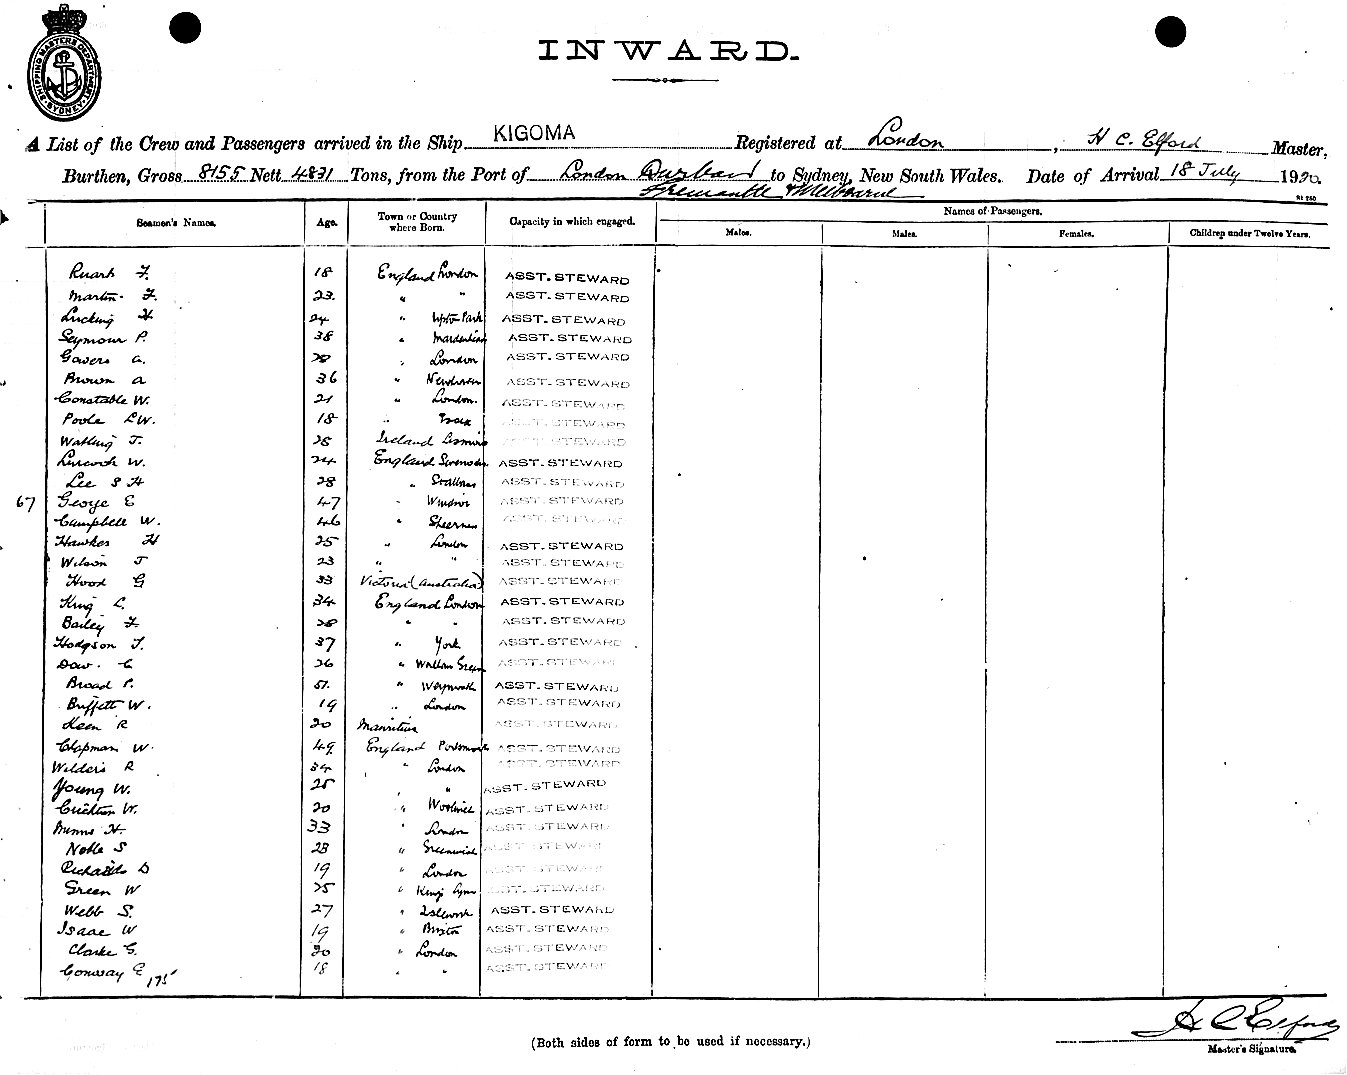 SHIPPING MASTERS DEPARTMENT SYDNEY
INWARD.
A List of the Crew and Passengers arrived in the Ship KIGOMA Registered at London, H C. Elford Master,
Burthen, Gross 8155 Nett 4831 Tons, from the Port of London Durban to Sydney, New South Wales. Date of Arrival 18 July 1920.
Fremantle & Melbourne
Seamen's Names. Age. Town or Country where Born. Capacity in which engaged. Names of Passengers.
Males. Males. Females. Children under Twelve Years.
F. 18 England London ASST. STEWARD
Martin. F. 23. " " ASST. STEWARD
Lucking H 24 " Upton Park ASST. STEWARD
Seymour P. 38 " ASST. STEWARD
Gowers A. " London ASST. STEWARD
Brown A 36 " Newhaven ASST. STEWARD
Constable W. 21 " London. ASST. STEWARD
Poole L W. 18 " ASST. STEWARD
Watling T. 28 Ireland ASST. STEWARD
W. 24 England ASST. STEWARD
Lee S H 28 " ASST. STEWARD
67 George E 47 " Windsor ASST. STEWARD
Campbell W. 46 " Sheerness ASST. STEWARD
Hawkes H 25 " London ASST. STEWARD
Wilson J 23 " " ASST. STEWARD
Hood G 33 Victoria (Australia) ASST. STEWARD
King L. 34 England London ASST. STEWARD
Bailey F. " " ASST. STEWARD
Hodgson J. 37 " York ASST. STEWARD
Dow. C 26 " Walham Green ASST. STEWARD
Broad P. 51. " Weymouth ASST. STEWARD
Buffett W. 19 " London ASST. STEWARD
Keen R 20 Mauritius ASST. STEWARD
Chapman W. 49 England Portsmouth ASST. STEWARD
R 34 " London ASST. STEWARD
Young W. 25 " " ASST. STEWARD
W. 20 " Woolwich ASST. STEWARD
H. 33 " London ASST. STEWARD
Noble S 28 " Greenwich ASST. STEWARD
Richards D 19 " London ASST. STEWARD
Green W 25 " Kings Lynn ASST. STEWARD
Webb S. 27 " Isleworth ASST. STEWARD
Isaac W 19 " Brixton ASST. STEWARD
Clarke G. 20 " London ASST. STEWARD
Conway E 18 " " ASST. STEWARD
175
H C Elford
Master's Signature.
(Both sides of form to be used if necessary.)